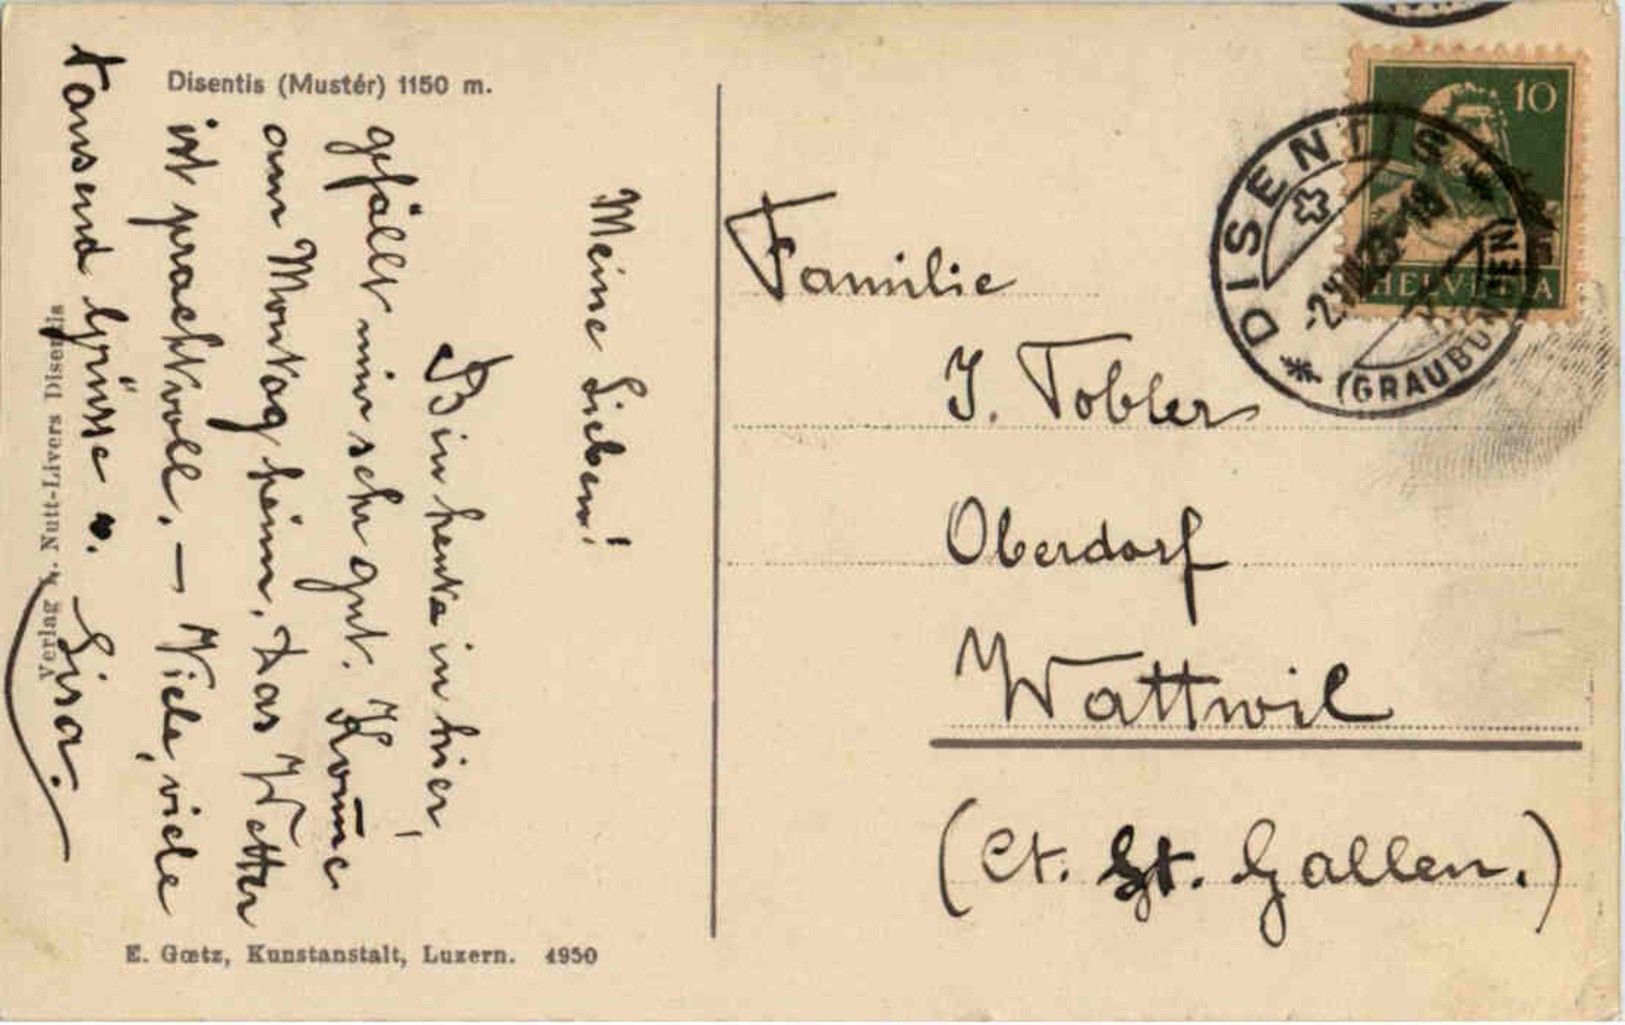 Disentis (Mustér) 1150 m.
Meine Lieben!
Bin heute in hier,
gefällt mir sehr gut. Kom̄e
am Montag heim. Das Wetter
ist prachtvoll. — Viele, viele
tausend Grüsse v.
Lisa.
Verlag A. Nutt-Livers Disentis
E. Gœtz, Kunstanstalt, Luzern. 4950
Familie
J. Tobler
Oberdorf
Wattwil
(Ct. St. Gallen.)
10
HELVETIA
DISENTIS
(GRAUBÜNDEN)